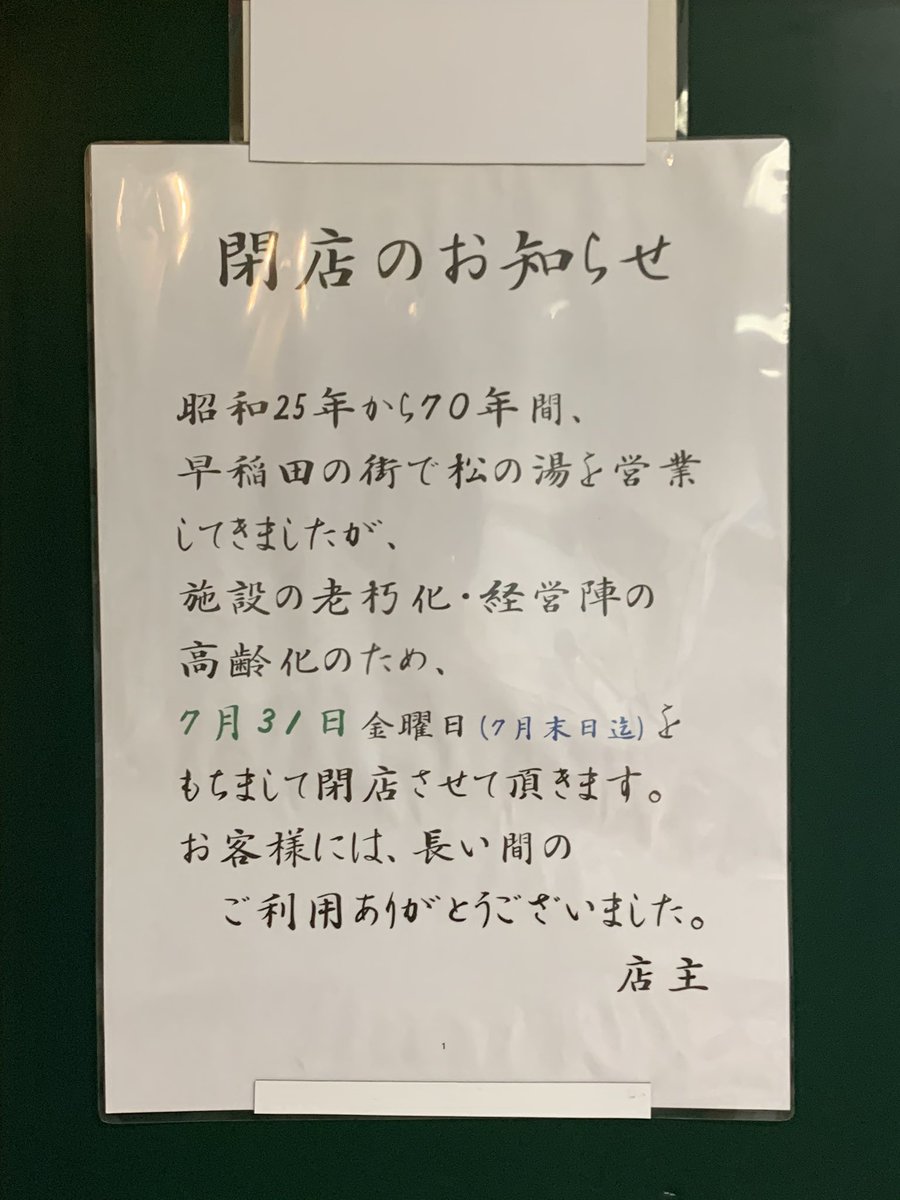 閉店のお知らせ
昭和25年から70年間、
早稲田の街で松の湯を営業
してきましたが、
施設の老朽化・経営陣の
高齢化のため、
7月31日 金曜日(7月末日迄)を
もちまして閉店させて頂きます。
お客様には、長い間の
ご利用ありがとうございました。
店主
1